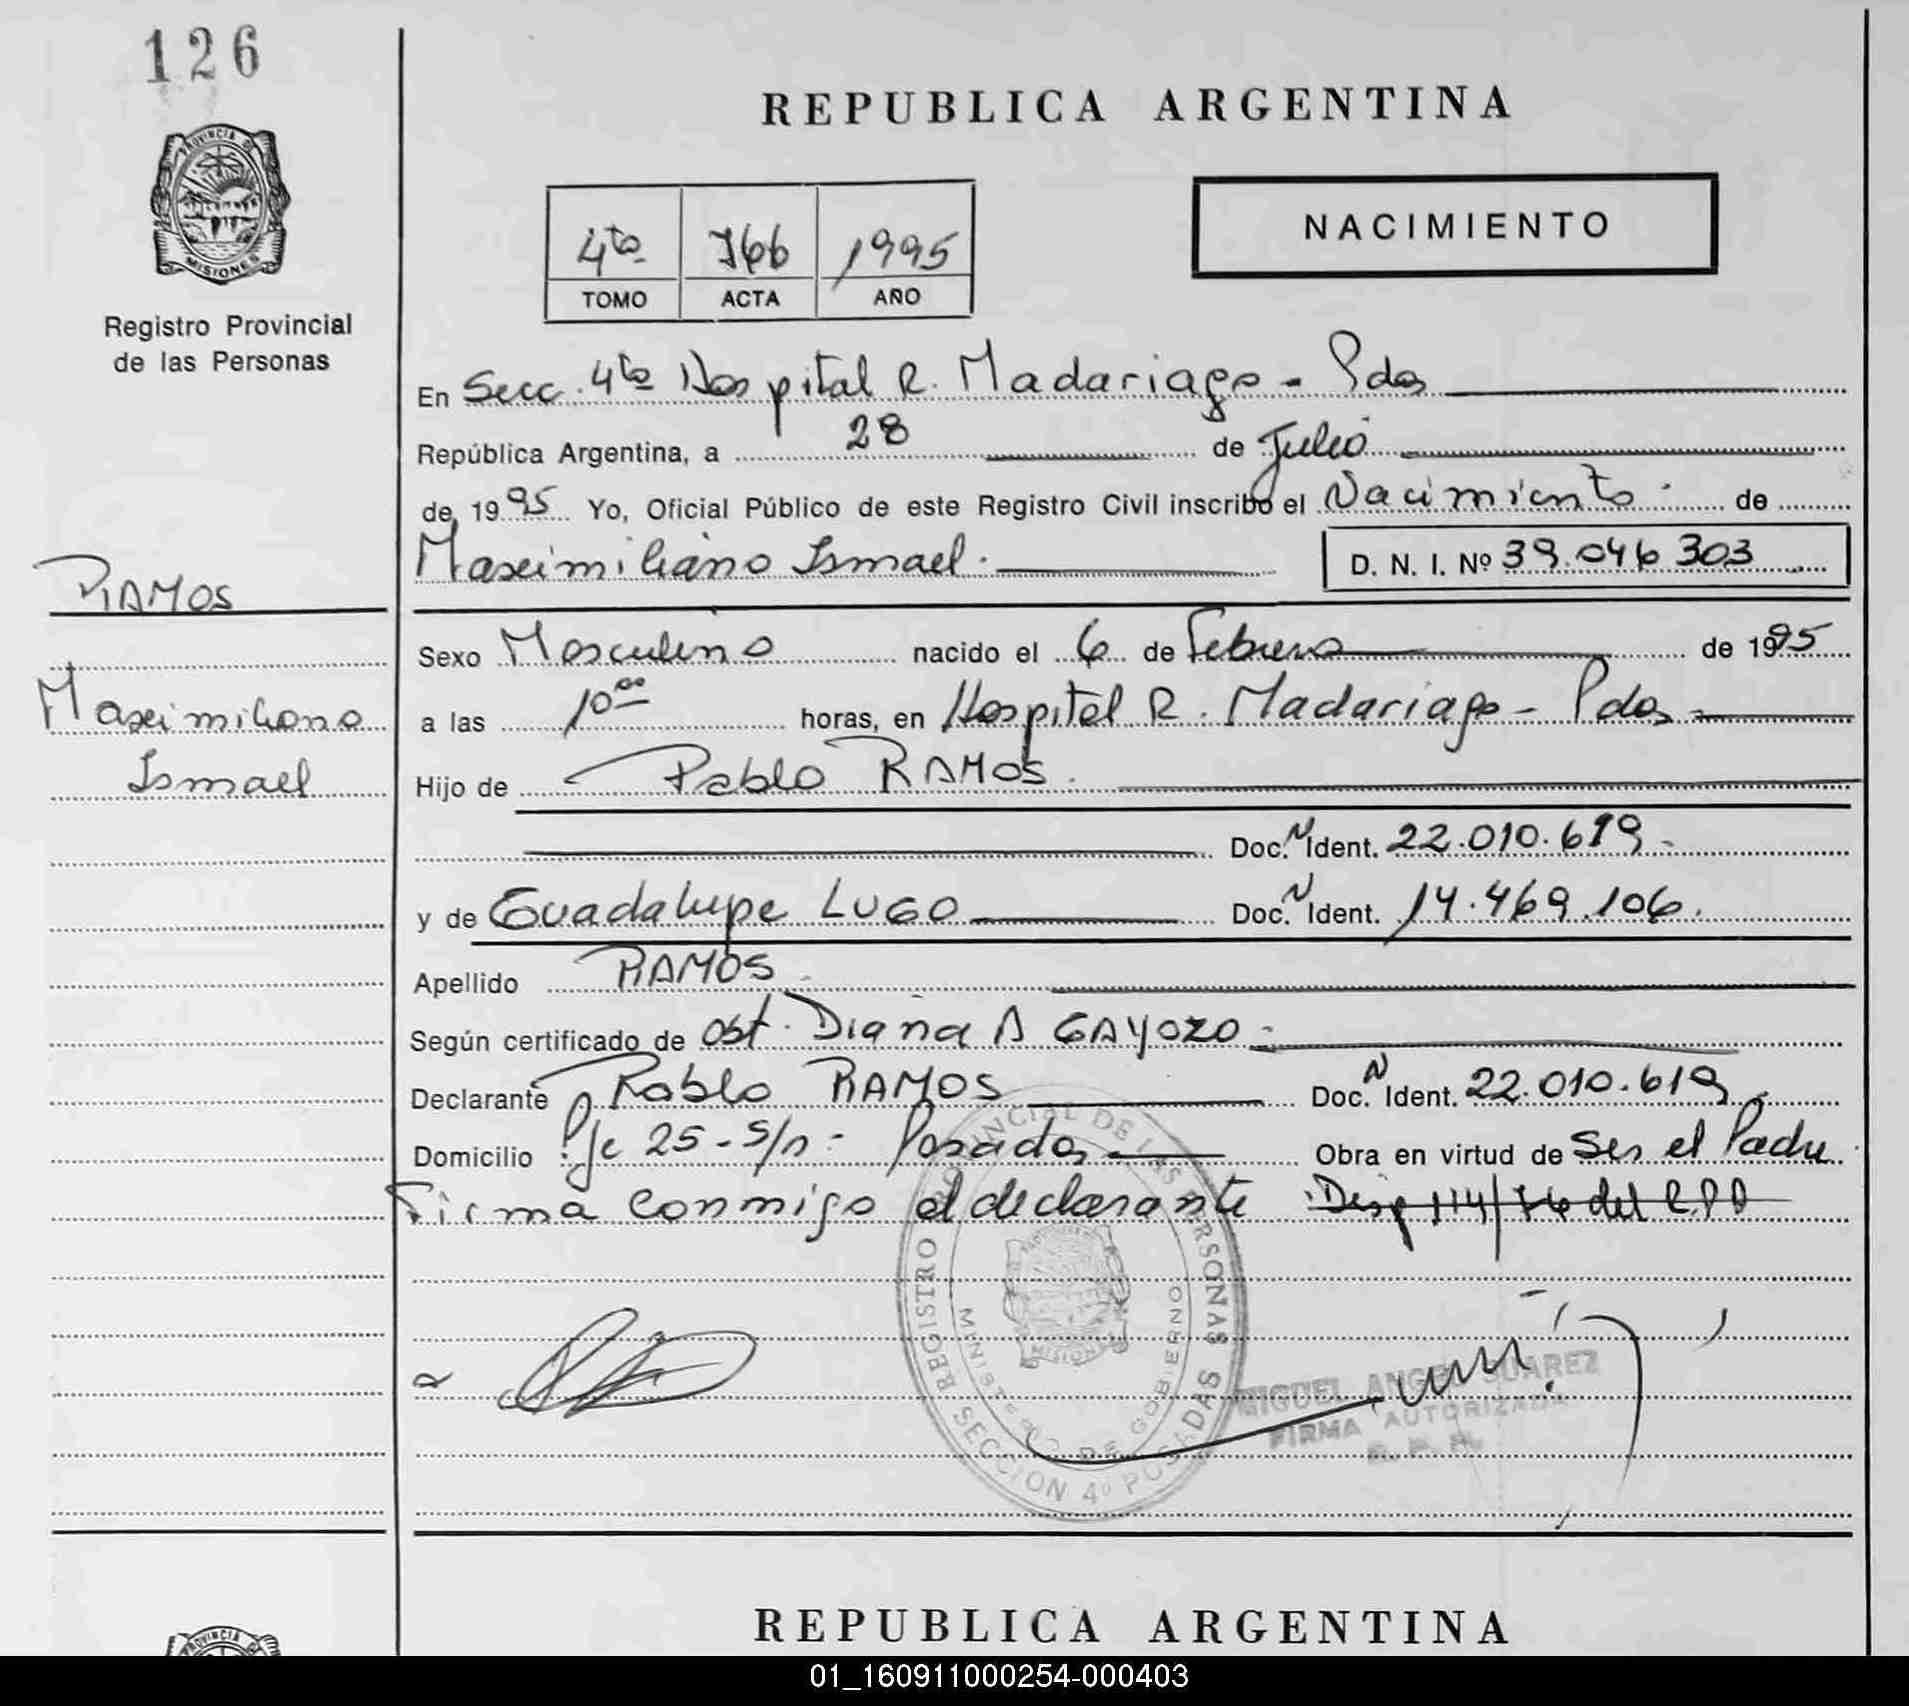 126
PROVINCIA DE
MISIONES
Registro Provincial
de las Personas
RAMOS
Maximiliano
Ismael
REPUBLICA ARGENTINA
NACIMIENTO
4to 766 1995
TOMO ACTA AÑO
En Secc. 4ta Hospital R. Madariaga - Pdas
República Argentina, a 28 de Julio
de 1995 Yo, Oficial Público de este Registro Civil inscribo el Nacimiento de
Maximiliano Ismael. D. N. I. Nº 39.046 303
Sexo Masculino nacido el 6 de Febrero de 1995
a las 10 00 horas, en Hospital R. Madariaga - Pdas
Hijo de Pablo RAMOS.
Doc. N Ident. 22.010.619
y de Guadalupe LUGO Doc. N Ident. 14.469.106.
Apellido RAMOS
Según certificado de Obst. Diana A GAYOZO
Declarante Pablo RAMOS Doc. N Ident. 22.010.619
Domicilio Pje 25 - S/n - Posadas Obra en virtud de Ser el Padre
Firma conmigo el declarante Disp 114/76 del R.P.P
REGISTRO PROVINCIAL DE LAS PERSONAS
MINISTERIO DE GOBIERNO
MISIONES
SECCION 4º POSADAS
MIGUEL ANGEL SUAREZ
FIRMA AUTORIZADA
R. P. P.
REPUBLICA ARGENTINA
PROVINCIA DE
01_160911000254-000403